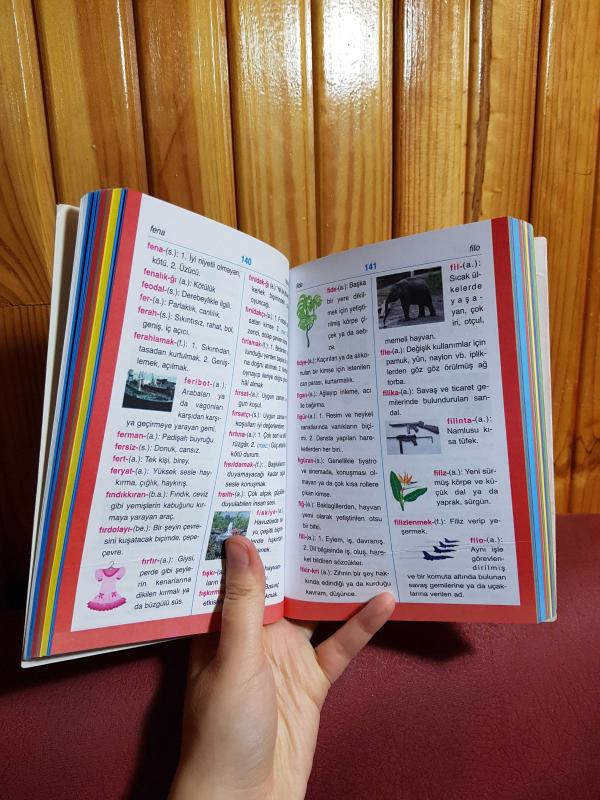 fena
140
fena-(s.): 1. İyi niyetli olmayan,
kötü. 2. Üzücü.
fenalık-ğı (a.): Kötülük
feodal-(s.): Derebeylikle ilgili.
fer-(a.): Parlaklık, canlılık.
ferah-(s.): Sıkıntısız, rahat, bol,
geniş, iç açıcı.
ferahlamak-(f.): 1. Sıkıntıdan,
tasadan kurtulmak. 2. Geniş-
lemek, açılmak.
feribot-(a.):
Arabaları ya
da vagonları
karşıdan karşı-
ya geçirmeye yarayan gemi.
ferman-(a.): Padişah buyruğu.
fersiz-(s.): Donuk, cansız.
fert-(a.): Tek kişi, birey.
feryat-(a.): Yüksek sesle hay-
kırma, çığlık, haykırış.
fındıkkıran-(b.a.): Fındık, ceviz
gibi yemişlerin kabuğunu kır-
maya yarayan araç.
fırdolayı-(be.): Bir şeyin çevre-
sini kuşatacak biçimde, çepe-
çevre.
fırfır-(a.): Giysi,
perde gibi şeyle-
rin kenarlarına
dikilen kırmalı ya
da büzgülü süs.
fırsat-(a.): Uygun zaman,
gun koşul.
fırsatçı-(s.): Uygun
koşulları iyi değerlendiren.
fırtına-(a.): 1. Çok sert
rüzgâr. 2. (mec.) Güç
kötü durum.
fısıldamak-(f.): Başkalarının
duyamayacağı kadar
sesle konuşmak.
fısıltı-(a.): Çok alçak, güçlükle
duyulabilen insan sesi.
fıskiye-(a.):
Havuzlarda
filo
141
fide-(a.): Başka
bir yere dikil-
mek için yetişti-
rilmiş körpe çi-
çek ya da seb-
ze.
fidye-(a.): Kaçırılan ya da alıko-
nulan bir kimse için istenilen
can parası, kurtarmalık.
figan-(a.): Ağlayıp inleme, acı
ile bağırma.
figür-(a.): 1. Resim ve heykel
sanatlarında varlıkların biçi-
mi. 2. Dansta yapılan hare-
ketlerden her biri.
figüran-(a.): Genellikle tiyatro
ve sinemada, konuşması ol-
mayan ya da çok kısa rollere
çıkan kimse.
fiğ-(a.): Baklagillerden, hayvan
yemi olarak yetiştirilen otsu
bir bitki.
fiil-(a.): 1. Eylem, iş, davranış.
2. Dil bilgisinde iş, oluş, hare-
ket bildiren sözcükler.
fikir-kri (a.): Zihnin bir şey hak-
kında edindiği ya da kurduğu
kavram, düşünce.
fil-(a.):
Sıcak ül-
kelerde
yaşa-
yan, çok
iri, otçul,
memeli hayvan.
file-(a.): Değişik kullanımlar için
pamuk, yün, naylon vb. iplik-
lerden göz göz örülmüş ağ
torba.
filika-(a.): Savaş ve ticaret ge-
milerinde bulundurulan san-
dal.
filinta-(a.):
Namlusu kı-
sa tüfek.
filiz-(a.): Yeni sür-
müş körpe ve kü-
çük dal ya da
yaprak, sürgün.
filizlenmek-(f.): Filiz verip ye-
şermek.
filo-(a.):
Aynı işle
görevlen-
dirilmiş
ve bir komuta altında bulunan
savaş gemilerine ya da uçak-
larına verilen ad.